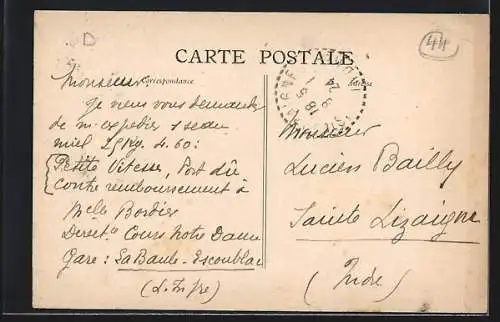 D
44
CARTE POSTALE
Correspondance
Adresse
Monsieur
Je viens vous demander
de m'expedier 1 seau
miel 25 Kg. 4.60:
Petite Vitesse, Port dû
contre remboursement à
Melle Bordier
Direct. Cours Notre Dame
Gare : La Baule-Escoublac
(L. Infre)
Monsieur
Lucien Bailly
Sainte Lizaigne
(Indre)